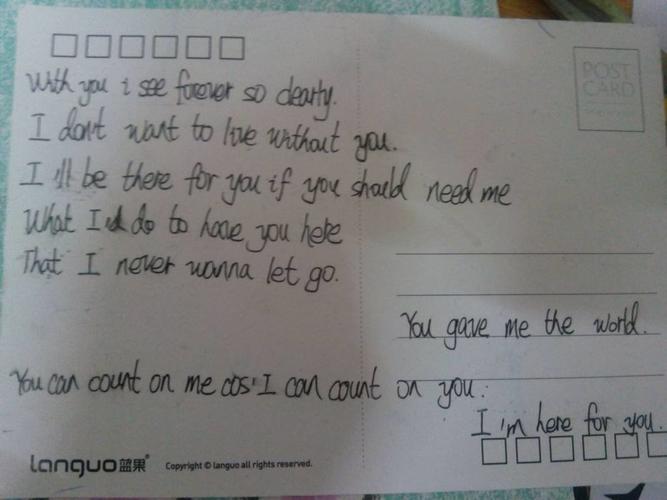 With you i see forever so clearly.
I don't want to live without you.
I'll be there for you if you should need me
What I'd do to have you here
That I never wanna let go.
You gave me the world.
You can count on me cos' I can count on you.
I'm here for you.
POST
CARD
languo蓝果
Copyright © languo all rights reserved.